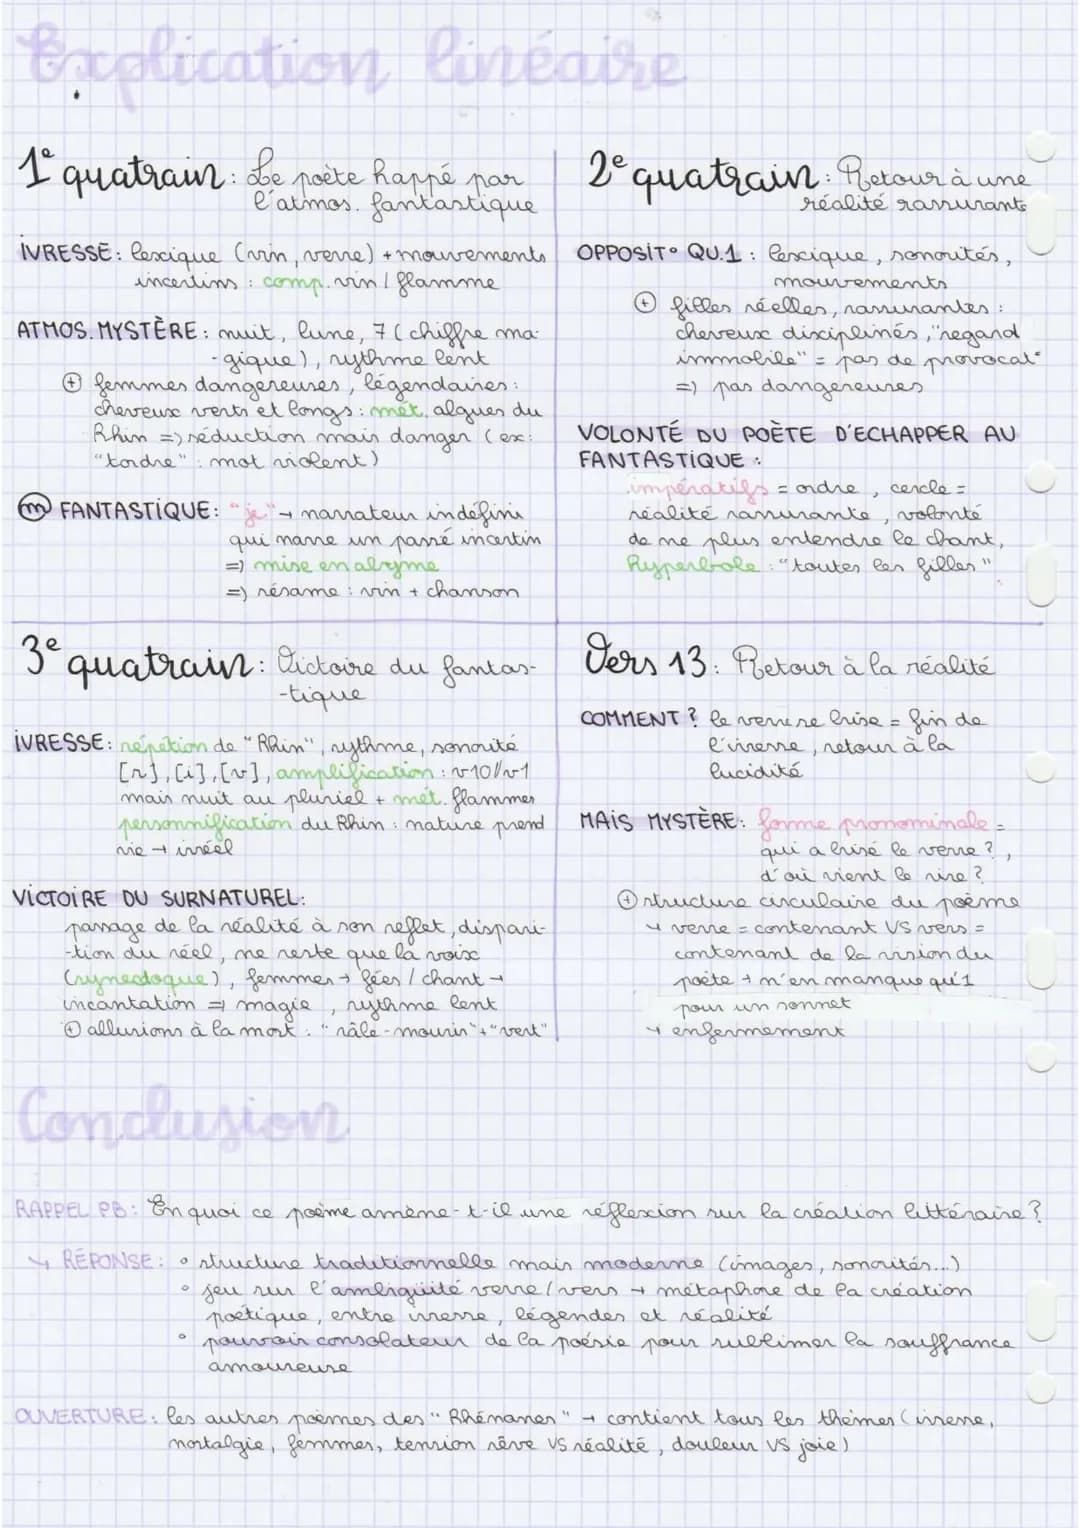 Explication linéaire
1e quatrain : Le poète happé par
l'atmos. fantastique
IVRESSE : lexique (vin, verre) + mouvements
incertins : comp. vin / flamme
ATMOS. MYSTÈRE : nuit, lune, 7 (chiffre ma-
-gique), rythme lent
⊕ femmes dangereuses, légendaires :
cheveux verts et longs : mét. algues du
Rhin => séduction mais danger (ex :
"tordre" : mot violent)
m FANTASTIQUE : "je" → narrateur indéfini
qui narre un passé incertin
=> mise en abyme
=> résame : vin + chanson
2e quatrain : Retour à une
réalité rassurante
OPPOSIT° QU.1 : lexique, sonorités,
mouvements
⊕ filles réelles, rassurantes :
cheveux disciplinés, "regard
immobile" = pas de provocat°
=> pas dangereuses
VOLONTÉ DU POÈTE D'ECHAPPER AU
FANTASTIQUE :
impératifs = ordre, cercle =
réalité rassurante, volonté
de ne plus entendre le chant,
hyperbole : "toutes les filles"
3e quatrain : Victoire du fantas-
-tique
IVRESSE : répétion de "Rhin", rythme, sonorité
[r], [i], [v], amplification : v10//v1
mais nuit au pluriel + mét. flammes
personnification du Rhin : nature prend
vie → irréel
VICTOIRE DU SURNATUREL :
passage de la réalité à son reflet, dispari-
-tion du réel, ne reste que la voix
(synecdoque), femmes → fées / chant →
incantation => magie, rythme lent
⊕ allusions à la mort : "râle-mourir" + "vert"
Vers 13 : Retour à la réalité
COMMENT ? le verre se brise = fin de
l'ivresse, retour à la
lucidité
MAIS MYSTÈRE : forme pronominale =
qui a brisé le verre ?,
d'où vient le rire ?
⊕ structure circulaire du poème
↳ verre = contenant VS vers =
contenant de la vision du
poète + n'en manque qu'1
pour un sonnet
↳ enfermement
Conclusion
RAPPEL PB : En quoi ce poème amène-t-il une réflexion sur la création littéraire ?
↳ RÉPONSE : ° structure traditionnelle mais moderne (images, sonorités...)
° jeu sur l'ambigüité verre / vers → métaphore de la création
poétique, entre ivresse, légendes et réalité
° pouvoir consolateur de la poésie pour sublimer la souffrance
amoureuse
OUVERTURE : les autres poèmes des "Rhénanes" → contient tous les thèmes (ivresse,
nostalgie, femmes, tension rêve VS réalité, douleur VS joie)